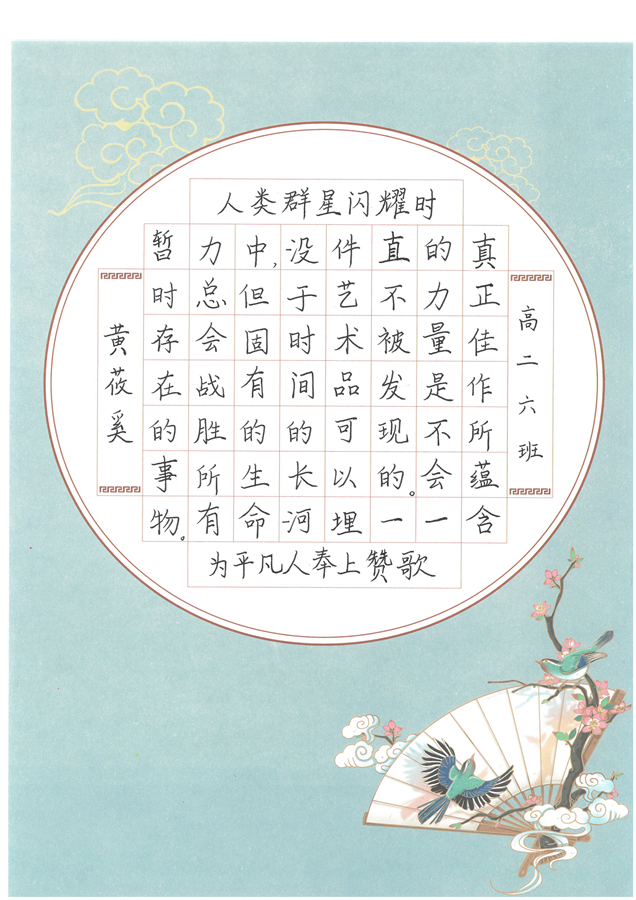 人类群星闪耀时
高二六班
真正佳作所蕴含
的力量是不会一
直不被发现的。一
件艺术品可以埋
没于时间的长河
中,但固有的生命
力总会战胜所有
暂时存在的事物。
黄莜奚
为平凡人奉上赞歌